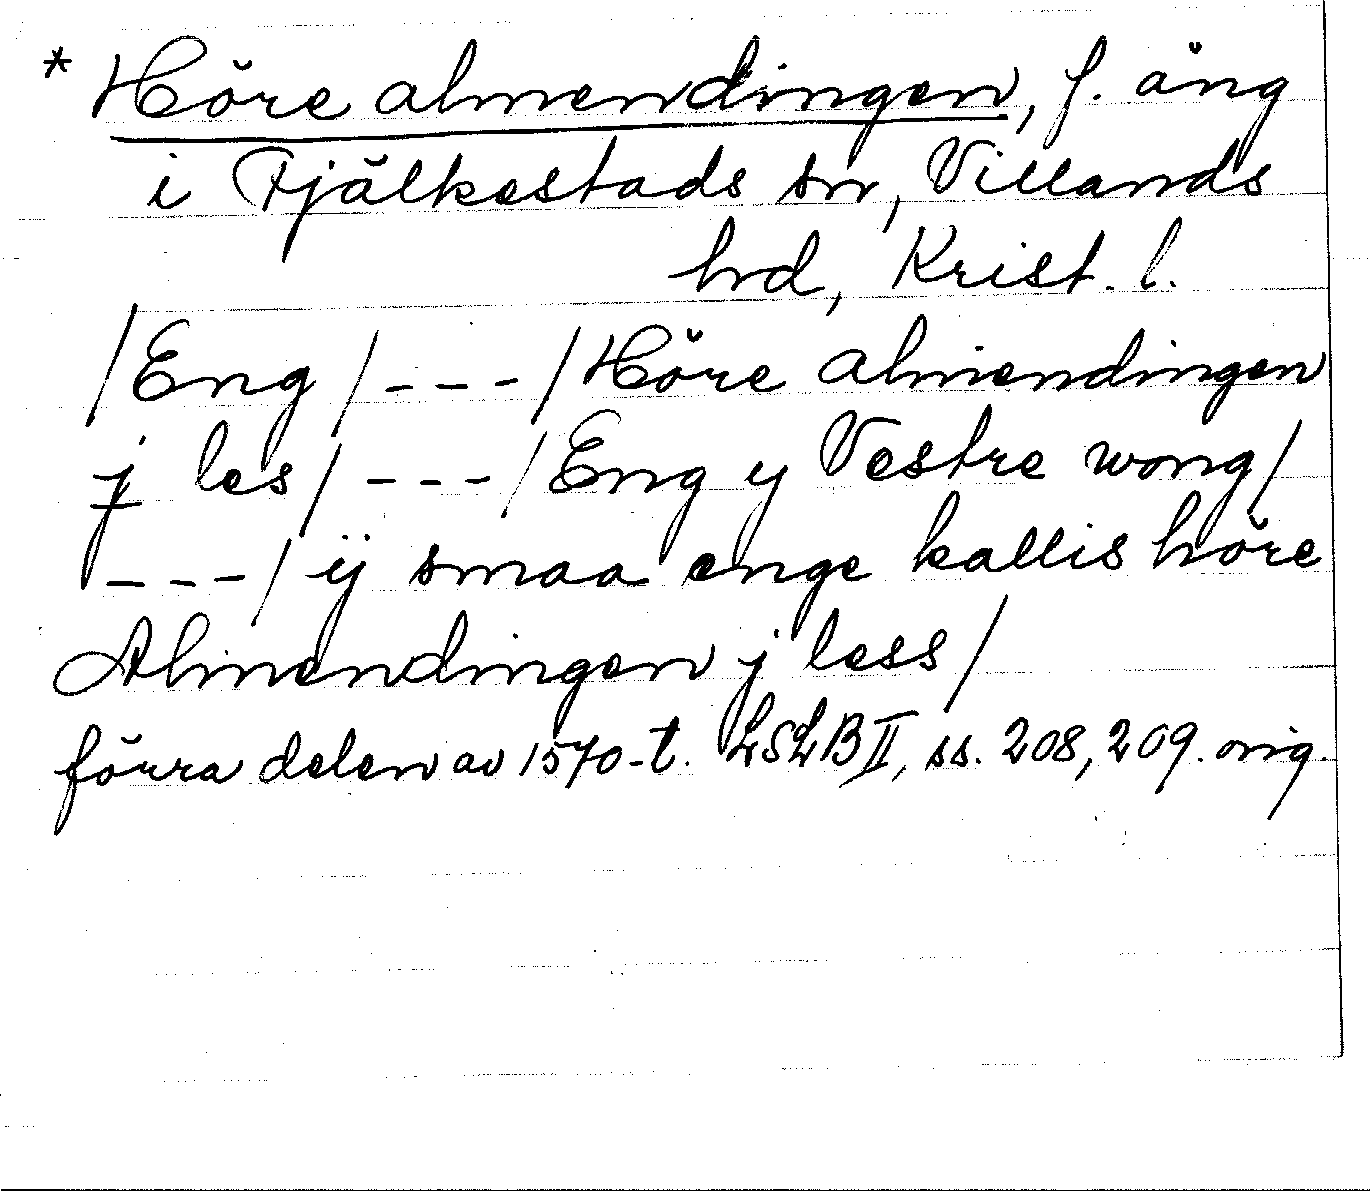 * Höre almendingen, f. äng
i Fjälkestads sn, Villands
hd, Krist. l.
/Eng/---/Höre almendingen
j les/---/Eng y Vestre wong/
---/ ij smaa enge kallis höre
Almendingen j less/
förra delen av 1570-t. LSLB II, ss. 208, 209. orig.